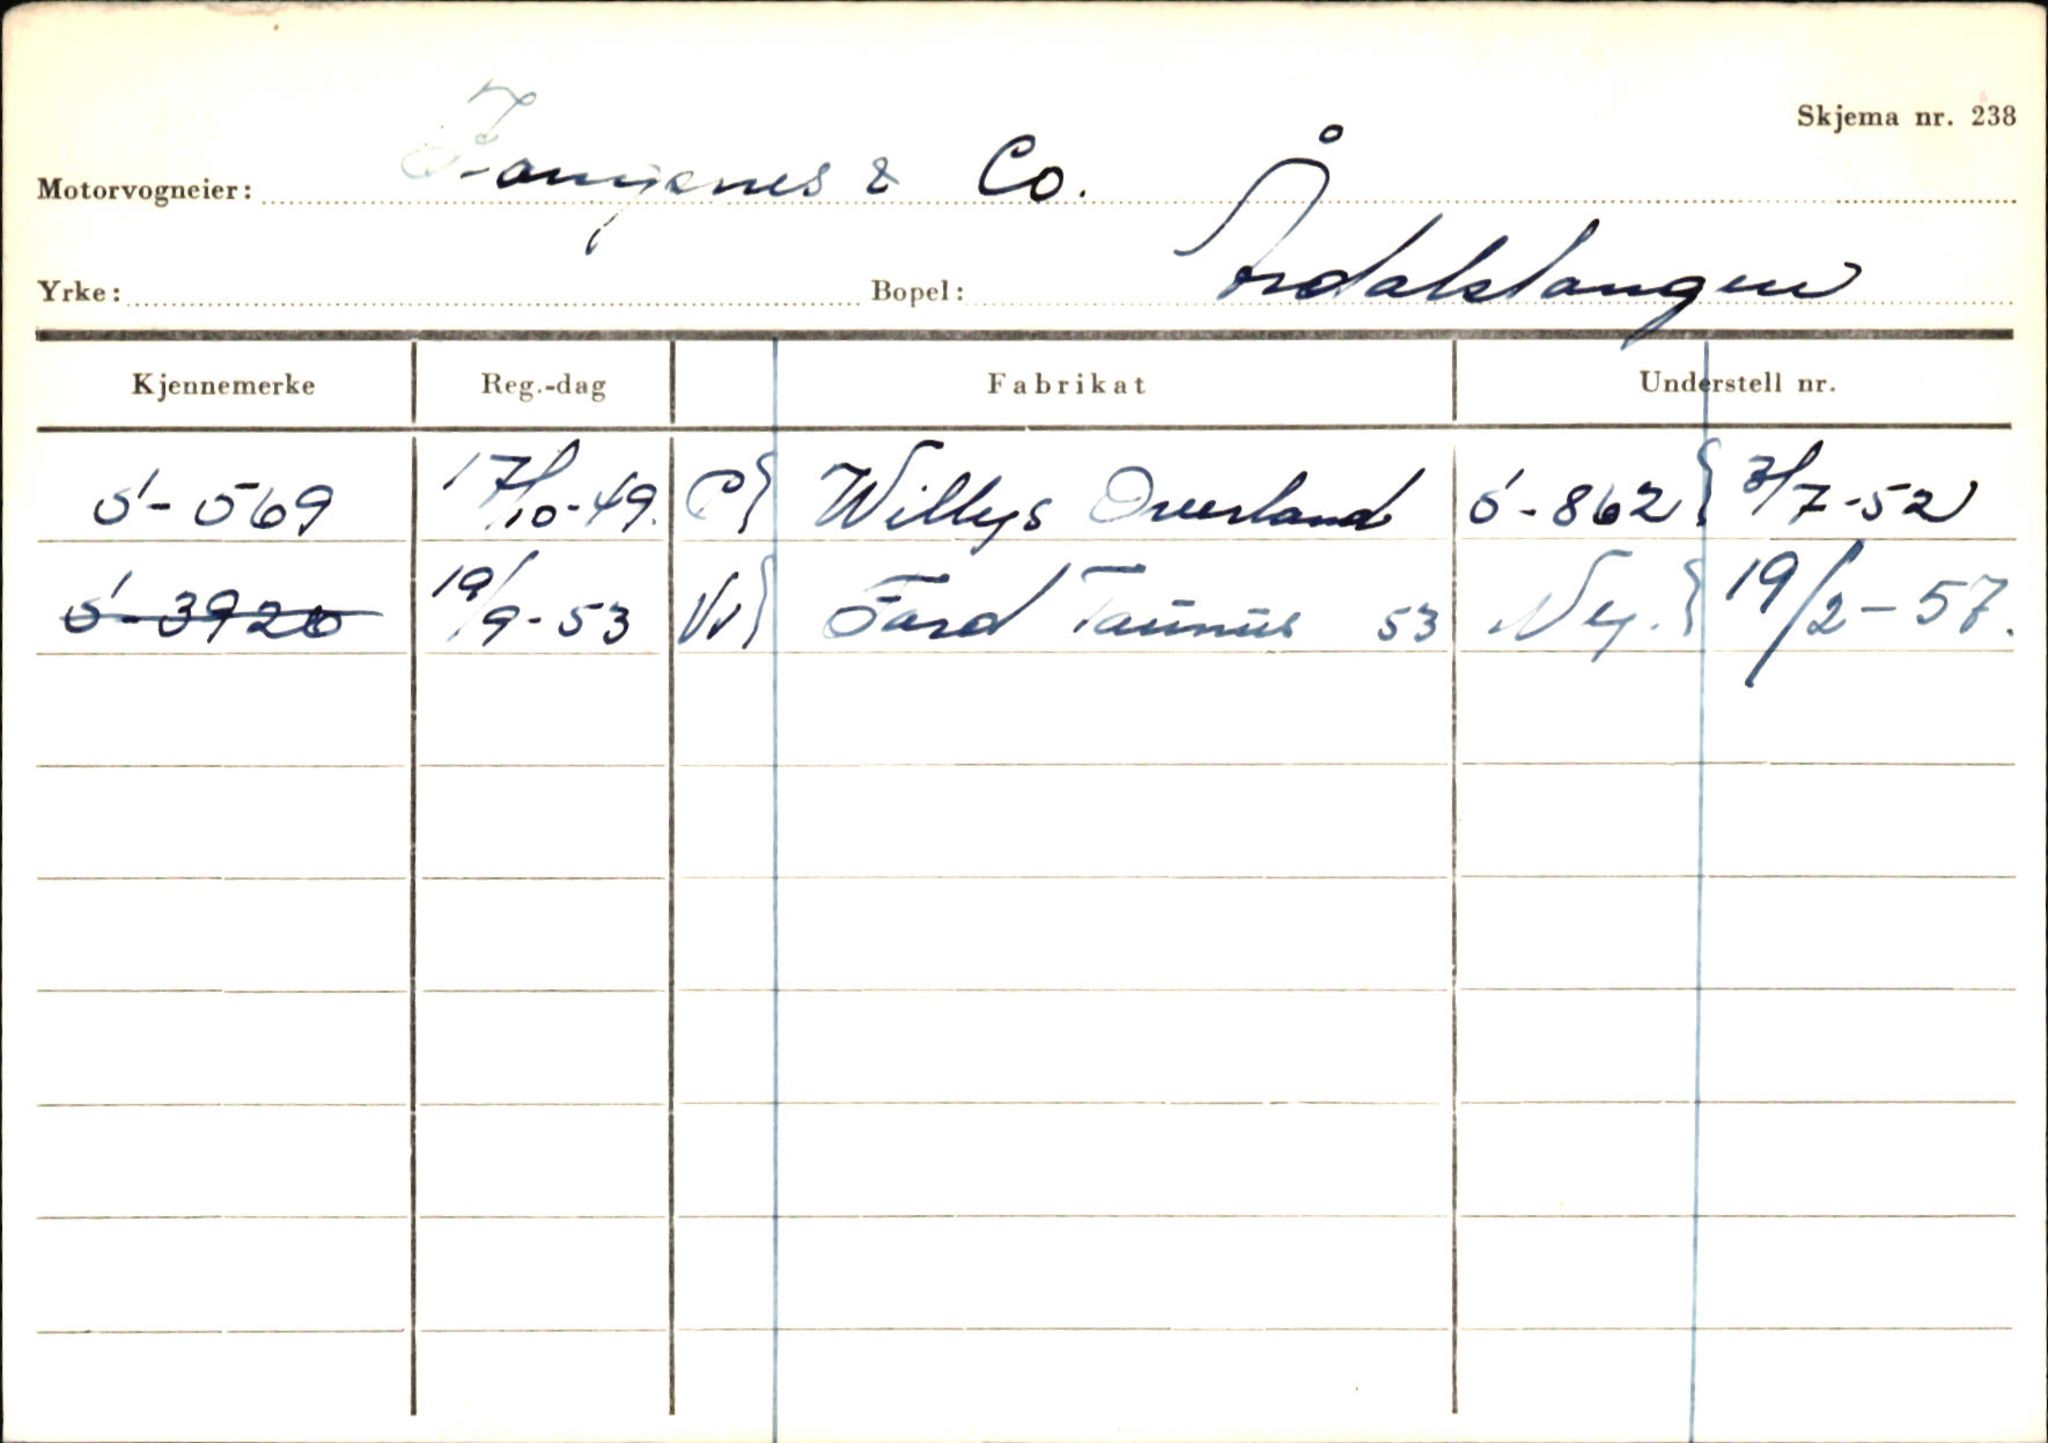 Skjema nr. 238
Motorvogneier: & Co.
Yrke: Bopel: Årdalstangen
Kjennemerke Reg.-dag Fabrikat Understell nr.
S-569 17/10-49. P} Willys Overland S-862 } 3/7-52
S-3920 19/9-53 VV} Ford Taunus 53 Ny. } 19/2-57.